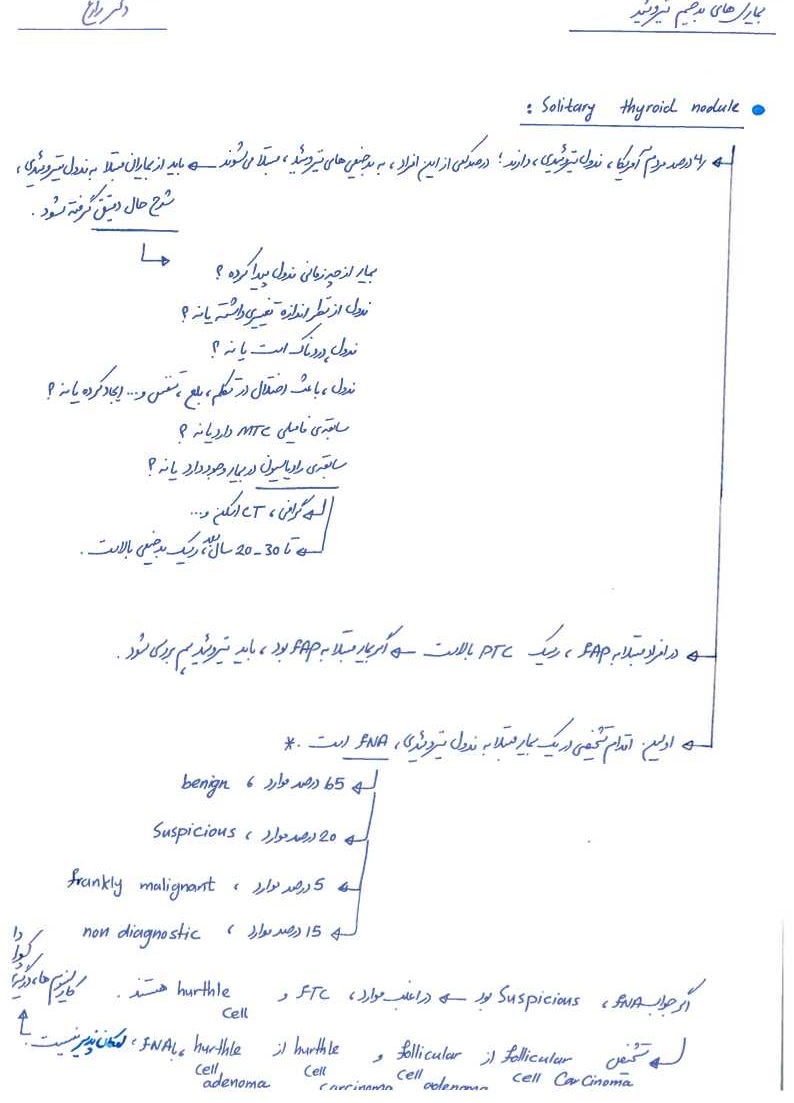 بیماری های بدخیم تیروئید
دکتر زارع
Solitary thyroid nodule :
4 درصد مردم آمریکا، ندول تیروئیدی، دارند؛ درصد کمی از این افراد، به بدخیمی های تیروئید، مبتلا می شوند ← باید از بیماران مبتلا به ندول تیروئیدی،
شرح حال دقیق گرفته شود.
بیمار از چه زمانی ندول پیدا کرده ؟
ندول از نظر اندازه تغییری داشته یا نه ؟
ندول دردناک است یا نه ؟
ندول، باعث اختلال در تکلم، بلع، تنفس و... ایجاد کرده یا نه ؟
سابقه ی فامیلی MTC دارد یا نه ؟
سابقه ی رادیاسیون در بیمار وجود دارد یا نه ؟
گرافی، CT اسکن و...
تا 30-20 سال بعد، ریسک بدخیمی بالاست.
در افراد مبتلا به FAP، ریسک PTC بالاست ← اگر بیمار مبتلا به FAP بود، باید تیروئید هم بررسی شود.
اولین اقدام تشخیصی در یک بیمار مبتلا به ندول تیروئیدی، FNA است. *
65 درصد موارد، benign
20 درصد موارد، Suspicious
5 درصد موارد، frankly malignant
15 درصد موارد، non diagnostic
اگر جواب FNA، Suspicious بود ← در اغلب موارد، FTC و hurthle cell هستند.
تشخیص follicular cell carcinoma از follicular cell adenoma و hurthle cell carcinoma از hurthle cell adenoma، با FNA، امکان پذیر نیست.